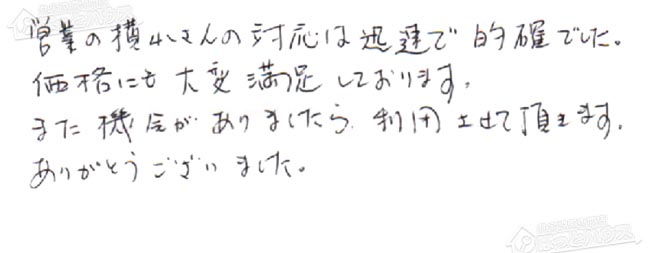 営業の横山さんの対応は迅速で的確でした。
価格にも大変満足しております。
また機会がありましたら利用させて頂きます。
ありがとうございました。